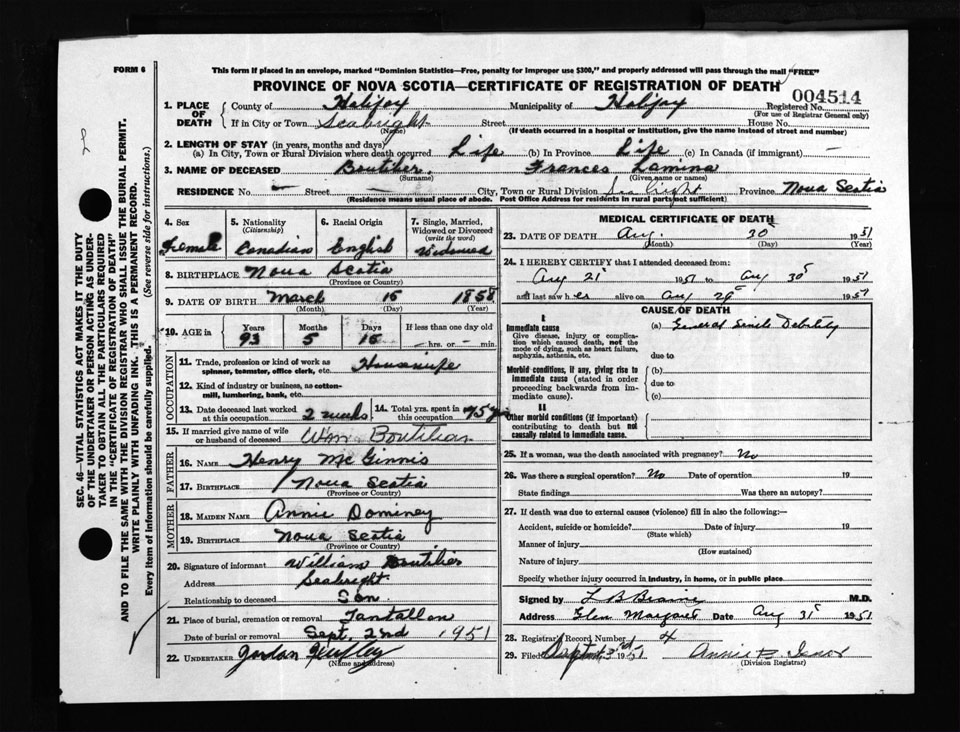 FORM 6
This form if placed in an envelope, marked "Dominion Statistics—Free, penalty for improper use $300," and properly addressed will pass through the mail "FREE"
PROVINCE OF NOVA SCOTIA—CERTIFICATE OF REGISTRATION OF DEATH
004514
1. PLACE OF DEATH
County of Halifax Municipality of Halifax Registered No.
(For use of Registrar General only)
If in City or Town Seabright Street House No.
(Name) (If death occurred in a hospital or institution, give the name instead of street and number)
2. LENGTH OF STAY (in years, months and days)
(a) In City, Town or Rural Division where death occurred Life (b) In Province Life (c) In Canada (if immigrant) —
3. NAME OF DECEASED Boutilier, Frances
(Surname) (Given name or names)
RESIDENCE No. — Street — City, Town or Rural Division Seabright Province Nova Scotia
(Residence means usual place of abode. Post Office Address for residents in rural parts not sufficient)
4. Sex
Female
5. Nationality
(Citizenship)
Canadian
6. Racial Origin
English
7. Single, Married, Widowed or Divorced
(write the word)
Widowed
8. BIRTHPLACE Nova Scotia
(Province or Country)
9. DATE OF BIRTH March 15 1858
(Month) (Day) (Year)
10. AGE in
Years Months Days If less than one day old
93 5 15 — hrs. or — min.
OCCUPATION
11. Trade, profession or kind of work as spinner, teamster, office clerk, etc. Housewife
12. Kind of industry or business, as cotton-mill, lumbering, bank, etc.
13. Date deceased last worked at this occupation 2 weeks
14. Total yrs. spent in this occupation 75 yrs
15. If married give name of wife or husband of deceased Wm Boutilier
FATHER
16. NAME Henry McGinnis
17. BIRTHPLACE Nova Scotia
(Province or Country)
MOTHER
18. MAIDEN NAME Annie Dominey
19. BIRTHPLACE Nova Scotia
(Province or Country)
20. Signature of informant William Boutilier
Address Seabright
Relationship to deceased Son
21. Place of burial, cremation or removal Tantallon
Date of burial or removal Sept. 2nd 1951
22. UNDERTAKER Jordan
(Name and address)
MEDICAL CERTIFICATE OF DEATH
23. DATE OF DEATH Aug. 30 1951
(Month) (Day) (Year)
24. I HEREBY CERTIFY that I attended deceased from:
Aug 21 1951 to Aug 30 1951
and last saw her alive on Aug 29 1951
CAUSE OF DEATH
I
Immediate cause
Give disease, injury or complication which caused death, not the mode of dying, such as heart failure, asphyxia, asthenia, etc.
(a) General Senile Debility
due to
Morbid conditions, if any, giving rise to immediate cause (stated in order proceeding backwards from immediate cause).
(b)
due to
(c)
II
Other morbid conditions (if important) contributing to death but not causally related to immediate cause.
25. If a woman, was the death associated with pregnancy? No
26. Was there a surgical operation? No Date of operation 19
State findings Was there an autopsy?
27. If death was due to external causes (violence) fill in also the following:—
Accident, suicide or homicide? Date of injury 19
(State which)
Manner of injury
(How sustained)
Nature of injury
Specify whether injury occurred in industry, in home, or in public place
Signed by M.D.
Address Glen Margaret Date Aug 31 1951
28. Registrar's Record Number 4
29. Filed Sept 3rd 1951 Annie B.
(Division Registrar)
SEC. 46—VITAL STATISTICS ACT MAKES IT THE DUTY
OF THE UNDERTAKER OR PERSON ACTING AS UNDER-
TAKER TO OBTAIN ALL THE PARTICULARS REQUIRED
IN THE "CERTIFICATE OF REGISTRATION OF DEATH"
AND TO FILE THE SAME WITH THE DIVISION REGISTRAR WHO SHALL ISSUE THE BURIAL PERMIT.
WRITE PLAINLY WITH UNFADING INK. THIS IS A PERMANENT RECORD.
Every item of information should be carefully supplied. (See reverse side for instructions.)